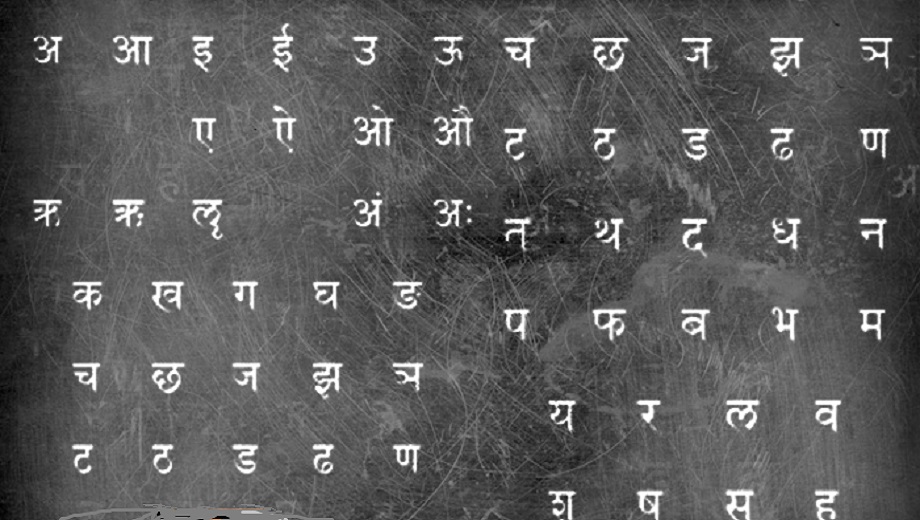 अ आ इ ई उ ऊ
ए ऐ ओ औ
ऋ ॠ ऌ अं अः
क ख ग घ ङ
च छ ज झ ञ
ट ठ ड ढ ण
च छ ज झ ञ
ट ठ ड ढ ण
त थ द ध न
प फ ब भ म
य र ल व
श ष स ह